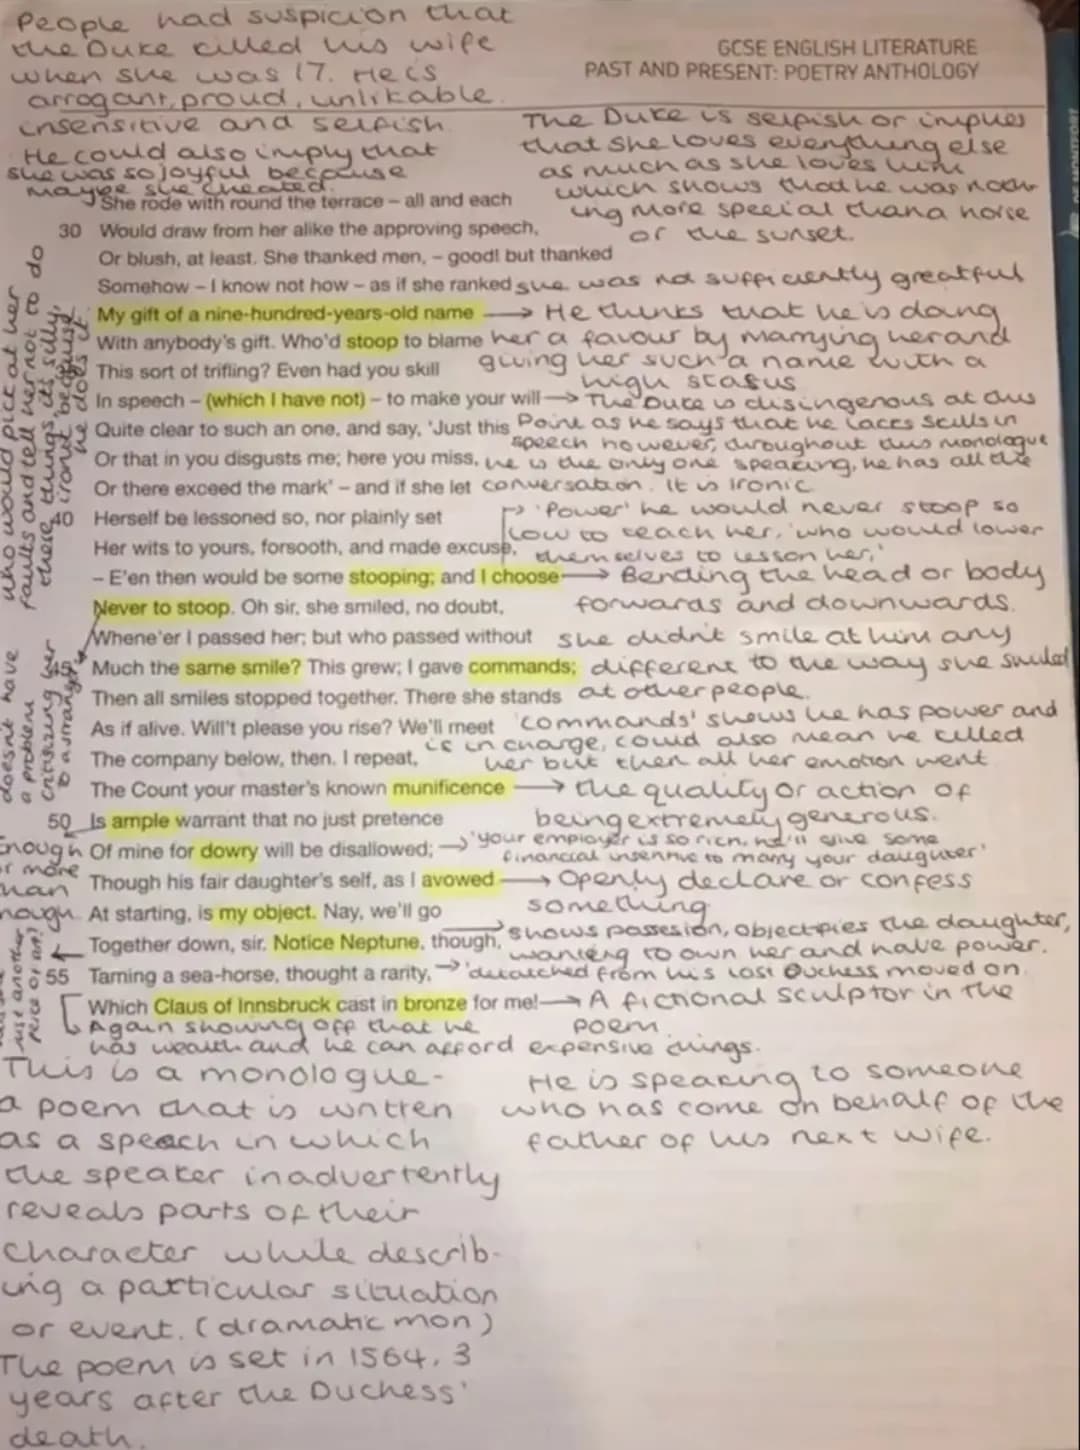 People had suspicion that
the Duke killed his wife
when she was 17. He is
arrogant, proud, unlikable
insensitive and selfish
He could also imply that
she was so joyful because
maybe she cheated.
GCSE ENGLISH LITERATURE
PAST AND PRESENT: POETRY ANTHOLOGY
The Duke is selfish or implies
that she loves everything else
as much as she loves him
which shows that he was noth-
ing more special than a horse
or the sunset.
She rode with round the terrace – all and each
30 Would draw from her alike the approving speech,
Or blush, at least. She thanked men, – good! but thanked
Somehow – I know not how – as if she ranked
she was not sufficiently greatful
My gift of a nine-hundred-years-old name
He thinks that he is doing
With anybody's gift. Who'd stoop to blame
her a favour by marrying her and
This sort of trifling? Even had you skill
giving her such a name with a
high status
In speech – (which I have not) – to make your will
The Duke is disingenous at this
Quite clear to such an one, and say, 'Just this
Point as he says that he lacks skills in
speech however, throughout this monologue
Or that in you disgusts me; here you miss,
he is the only one speaking, he has all the
Or there exceed the mark' – and if she let
conversation. It is Ironic
40 Herself be lessoned so, nor plainly set
'Power' he would never stoop so
low to teach her, 'who would lower
Her wits to yours, forsooth, and made excuse,
themselves to lesson her,'
– E'en then would be some stooping; and I choose
Bending the head or body
Never to stoop. Oh sir, she smiled, no doubt,
forwards and downwards.
Whene'er I passed her; but who passed without
she didn't smile at him any
45 Much the same smile? This grew; I gave commands;
different to the way she smiled
Then all smiles stopped together. There she stands
at other people.
As if alive. Will't please you rise? We'll meet
'commands' shows he has power and
is in charge, could also mean he killed
The company below, then. I repeat,
her but then all her emotion went
The Count your master's known munificence
the quality or action of
50 Is ample warrant that no just pretence
being extremely generous.
Enough
or more
than
nough
Of mine for dowry will be disallowed;
'your employer is so rich, he'll give some
financial insentive to marry your daughter'
Though his fair daughter's self, as I avowed
Openly declare or confess
something
At starting, is my object. Nay, we'll go
shows possesion, objectifies the daughter,
wanting to own her and have power.
Together down, sir. Notice Neptune, though,
55 Taming a sea-horse, thought a rarity,
'detatched from his last Duchess moved on
Which Claus of Innsbruck cast in bronze for me!
A fictional sculptor in the
poem
Again showing off that he
has wealth and he can afford expensive things.
who would pick at her
faults and tell her not to do
these things, its silly,
ironic because
he does it
doesn't have
a problem
critisizing her
to a stranger
just another
peice of art?
This is a monologue-
a poem that is written
as a speach in which
the speaker inadvertently
reveals parts of their
character while describ-
ing a particular situation
or event. (dramatic mon)
The poem is set in 1564, 3
years after the Duchess'
death.
He is speaking to someone
who has come on behalf of the
father of his next wife.